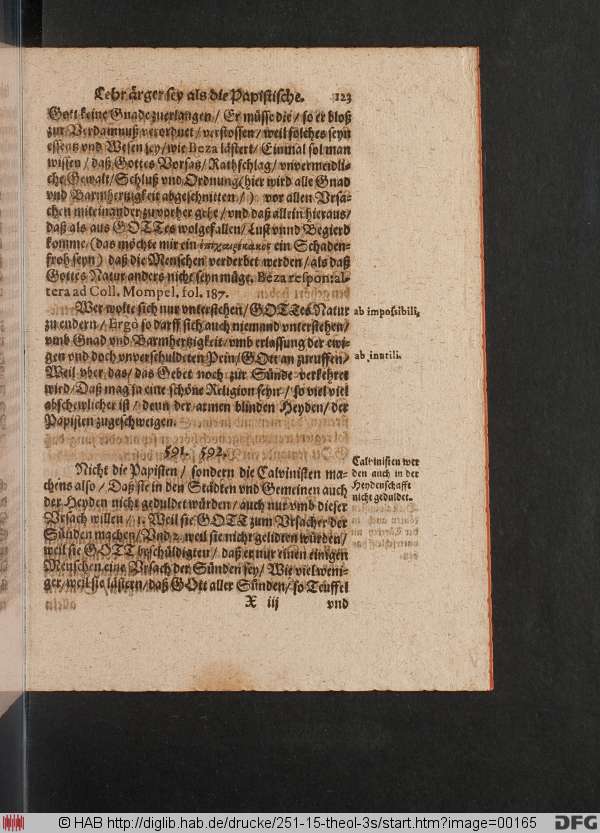 Lehr ärger sey als die Papistische. 123
Gott keine Gnade zuerlangen / Er müsse die / so er bloß
zur Verdamnuß verordnet / verstossen / weil solches seyn
essentz vnd Wesen sey / wie Beza lästert / Einmal sol man
wissen / daß Gottes Vorsatz / Rathschlag / vnvermeidli-
che Gewalt / Schluß vnd Ordnung (hier wird alle Gnad
vnd Barmhertzigkeit abgeschnitten /) vor allen Vrsa-
chen miteinander zuvorher gehe / vnd daß allein hieraus /
daß als aus GOTTes wolgefallen / Lust vnnd Begierd
komme (Das möchte mir ein ἐπιχαιρέκακος ein Schaden-
froh seyn) daß die Menschen verderbet werden / als daß
Gottes Natur anders nicht seyn müge. Beza respon: al-
tera ad Coll. Mompel. fol. 187.
Wer wolte sich nur vnterstehen / GOTTes Natur
zu endern / Ergò so darff sich auch niemand vnterstehen /
vmb Gnad vnd Barmhertzigkeit / vmb erlassung der ewi-
gen vnd doch vnverschuldeten Pein / GOtt an zuruffen /
Weil vber das / das Gebet noch zur Sünde verkehret
wird / Daß mag ja eine schöne Religion seyn / so viel viel
abschewlicher ist / denn der armen blinden Heyden / der
Papisten zugeschweigen.
ab impossibili,
ab inutili.
591. 592.
Nicht die Papisten / sondern die Calvinisten ma-
chens also / Daß sie in den Städten vnd Gemeinen auch
der Heyden nicht geduldet würden / auch nur vmb dieser
Vrsach willen / 1. Weil sie GOTT zum Vrsacher der
Sünden machen / Vnd 2. weil sie nicht gelidten würden /
weil sie GOTT beschüldigten / daß er nur einen einigen
Menschen eine Vrsach der Sünden sey / Wie viel weni-
ger / weil sie lästern / daß GOtt aller Sünden / so Teuffel
Calvinisten wer
den auch in der
Heydenschafft
nicht geduldet.
X iij vnd
© HAB http://diglib.hab.de/drucke/251-15-theol-3s/start.htm?image=00165
DFG